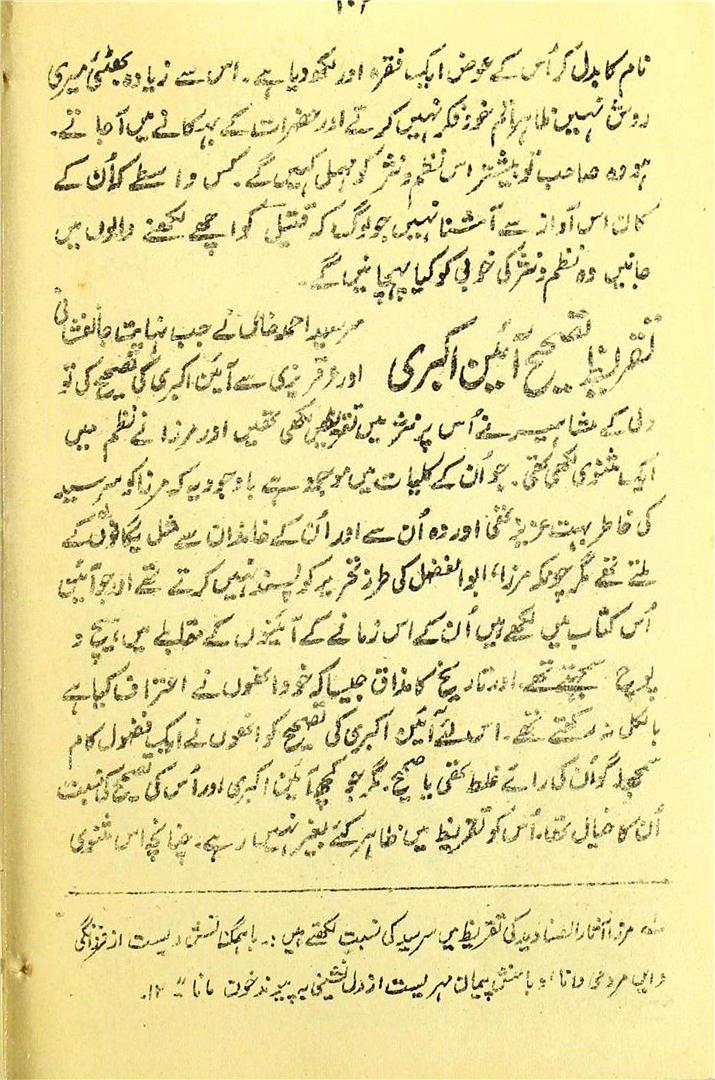 ۱۰۲
نام کا بدل کر اُس کے عوض ایک فقرہ اور لکھ دیا ہے۔ اس سے زیادہ بھٹئی میری
روش نہیں ظاہراً تم خود فکر نہیں کرتے اور حضرات کے بہکانے میں آجاتے۔
ہو وہ صاحب تو بیشتر اس نظم و نثر کو مہمل کہیں گے۔ کس واسطے کہ اُن کے
کان اس آواز سے آشنا نہیں جو لوگ کہ قتیل کو اچھے لکھنے والوں میں
جانیں وہ نظم و نثر کی خوبی کو کیا پہچانیں گے۔
تقریظ تصحیح آئین اکبری
سر سید احمد خاں نے جب نہایت جانفشانی
اور عرقریزی سے آئین اکبری کی تصحیح کی تو
دلی کے مشاہیر نے اُس پر نثر میں تقریظیں لکھی تھیں اور مرزا نے نظم میں
ایک مثنوی لکھی تھی۔ جو اُن کے کلیات میں موجود ہے باوجودیکہ مرزا کو سر سید
کی خاطر بہت عزیز تھی اور وہ اُن سے اور اُن کے خاندان سے مثل یگانوں کے
ملتے تھے مگر چونکہ مرزا، ابوالفضل کی طرز تحریر کو پسند نہیں کرتے تھے اور جو آئین
اُس کتاب میں لکھے ہیں اُن کے اس زمانے کے آئینوں کے مقابلے میں، ہیچ و
پوچ سمجھتے تھے۔ اور تاریخ کا مذاق جیسا کہ خود انھوں نے اعتراف کیا ہے
بالکل نہ رکھتے تھے۔ اس لئے آئین اکبری کی تصحیح کو انھوں نے ایک فضول کام
سمجھا۔ گو اُن کی رائے غلط تھی یا صحیح۔ مگر جو کچھ آئین اکبری اور اُس کی تصحیح کی نسبت
اُن کا خیال تھا۔ اُس کو تقریظ میں ظاہر کئے بغیر نہیں رہے۔ چنانچہ اس مثنوی
مرزا آثار الصنادید کی تقریظ میں سر سید کی نسبت لکھتے ہیں:۔ باہمگنانش دیست از فرزانگی
و ایں مردمی دانا او با منش پیمان مہریست از دل نشینی بہ پیوند خون مانا" ۱۲۔